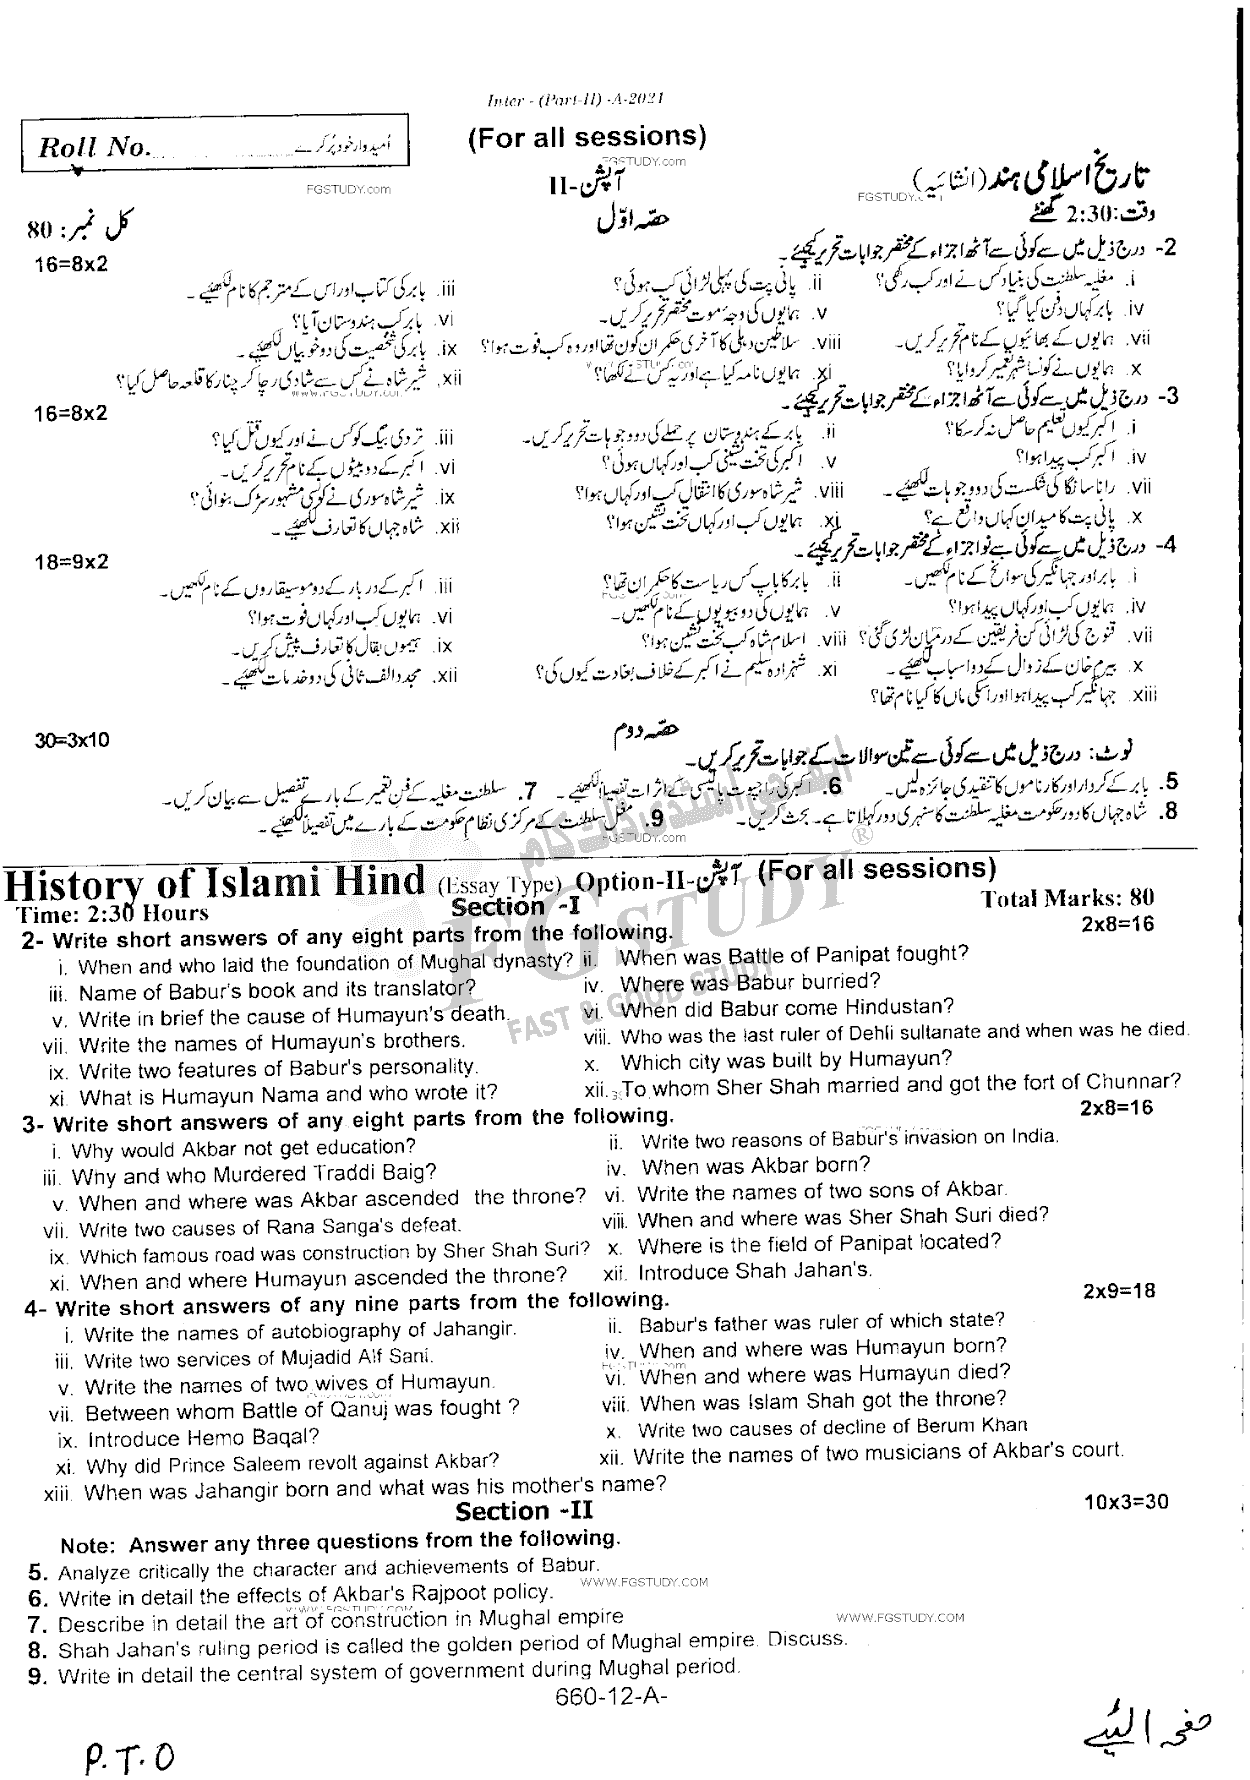 Inter - (Part-II) -A-2021
Roll No. امیدوار خود پُر کرے
(For all sessions)
FGSTUDY.com
FGSTUDY.com
تاریخ اسلامی ہند (انشائیہ) آپشن-II
FGSTUDY.
وقت: 2:30 گھنٹے حصہ اوّل کل نمبر: 80
2- درج ذیل میں سے کوئی سے آٹھ اجزاء کے مختصر جوابات تحریر کیجئیے۔ 16=8x2
i. مغلیہ سلطنت کی بنیاد کس نے اور کب رکھی؟ ii. پانی پت کی پہلی لڑائی کب ہوئی؟ iii. بابر کی کتاب اور اس کے مترجم کا نام لکھئیے۔
iv. بابر کہاں دفن کیا گیا؟ v. ہمایوں کی وجہ موت مختصر تحریر کریں۔ vi. بابر کب ہندوستان آیا؟
vii. ہمایوں کے بھائیوں کے نام تحریر کریں۔ viii. سلاطین دہلی کا آخری حکمران کون تھا اور وہ کب فوت ہوا؟ ix. بابر کی شخصیت کی دو خوبیاں لکھئیے۔
x. ہمایوں نے کونسا شہر تعمیر کروایا؟ xi. ہمایوں نامہ کیا ہے اور یہ کس نے لکھا؟ xii. شیر شاہ نے کس سے شادی رچا کر چنار کا قلعہ حاصل کیا؟
3- درج ذیل میں سے کوئی سے آٹھ اجزاء کے مختصر جوابات تحریر کیجئیے۔ 16=8x2
i. اکبر کیوں تعلیم حاصل نہ کر سکا؟ ii. بابر کے ہندوستان پر حملے کی دو وجوہات تحریر کریں۔ iii. تردی بیگ کو کس نے اور کیوں قتل کیا؟
iv. اکبر کب پیدا ہوا؟ v. اکبر کی تخت نشینی کب اور کہاں ہوئی؟ vi. اکبر کے دو بیٹوں کے نام تحریر کریں۔
vii. رانا سانگا کی شکست کی دو وجوہات لکھئیے۔ viii. شیر شاہ سوری کا انتقال کب اور کہاں ہوا؟ ix. شیر شاہ سوری نے کونسی مشہور سڑک بنوائی؟
x. پانی پت کا میدان کہاں واقع ہے؟ xi. ہمایوں کب اور کہاں تخت نشین ہوا؟ xii. شاہ جہاں کا تعارف لکھئیے۔
4- درج ذیل میں سے کوئی سے نو اجزاء کے مختصر جوابات تحریر کیجئیے۔ 18=9x2
i. بابر اور جہانگیر کی سوانح کے نام لکھیں۔ ii. بابر کا باپ کس ریاست کا حکمران تھا؟ iii. اکبر کے دربار کے دو موسیقاروں کے نام لکھیں۔
iv. ہمایوں کب اور کہاں پیدا ہوا؟ v. ہمایوں کی دو بیویوں کے نام لکھیں۔ vi. ہمایوں کب اور کہاں فوت ہوا؟
vii. قنوج کی لڑائی کن فریقین کے درمیان لڑی گئی؟ viii. اسلام شاہ کب تخت نشین ہوا؟ ix. ہیموں بقال کا تعارف پیش کریں۔
x. بیرم خان کے زوال کے دو اسباب لکھئیے۔ xi. شہزادہ سلیم نے اکبر کے خلاف بغاوت کیوں کی؟ xii. مجدد الف ثانی کی دو خدمات لکھئیے۔
xiii. جہانگیر کب پیدا ہوا اور اسکی ماں کا کیا نام تھا؟
حصہ دوم 30=3x10
نوٹ: درج ذیل میں سے کوئی سے تین سوالات کے جوابات تحریر کریں۔
5. بابر کے کردار اور کارناموں کا تنقیدی جائزہ لیں۔ 6. اکبر کی راجپوت پالیسی کے اثرات تفصیلاً لکھئیے۔ 7. سلطنت مغلیہ کے فن تعمیر کے بارے تفصیل سے بیان کریں۔
8. شاہ جہاں کا دور حکومت مغلیہ سلطنت کا سنہری دور کہلاتا ہے۔ بحث کریں۔ 9. مغل سلطنت کے مرکزی نظام حکومت کے بارے میں تفصیلاً لکھئیے۔
FGSTUDY.com
ایف جی اسٹڈی ڈاٹ کام
FG STUDY ®
FAST & GOOD STUDY
History of Islami Hind (Essay Type) Option-II-آپشن (For all sessions)
Time: 2:30 Hours Section -I Total Marks: 80
2- Write short answers of any eight parts from the following. 2x8=16
i. When and who laid the foundation of Mughal dynasty? ii. When was Battle of Panipat fought?
iii. Name of Babur's book and its translator? iv. Where was Babur burried?
v. Write in brief the cause of Humayun's death. vi. When did Babur come Hindustan?
vii. Write the names of Humayun's brothers. viii. Who was the last ruler of Dehli sultanate and when was he died.
ix. Write two features of Babur's personality. x. Which city was built by Humayun?
xi. What is Humayun Nama and who wrote it? xii. To whom Sher Shah married and got the fort of Chunnar?
3- Write short answers of any eight parts from the following. 2x8=16
i. Why would Akbar not get education? ii. Write two reasons of Babur's invasion on India.
iii. Why and who Murdered Traddi Baig? iv. When was Akbar born?
v. When and where was Akbar ascended the throne? vi. Write the names of two sons of Akbar.
vii. Write two causes of Rana Sanga's defeat. viii. When and where was Sher Shah Suri died?
ix. Which famous road was construction by Sher Shah Suri? x. Where is the field of Panipat located?
xi. When and where Humayun ascended the throne? xii. Introduce Shah Jahan's.
4- Write short answers of any nine parts from the following. 2x9=18
i. Write the names of autobiography of Jahangir. ii. Babur's father was ruler of which state?
iii. Write two services of Mujadid Alf Sani. iv. When and where was Humayun born?
v. Write the names of two wives of Humayun. vi. When and where was Humayun died?
vii. Between whom Battle of Qanuj was fought ? viii. When was Islam Shah got the throne?
ix. Introduce Hemo Baqal? x. Write two causes of decline of Berum Khan
xi. Why did Prince Saleem revolt against Akbar? xii. Write the names of two musicians of Akbar's court.
xiii. When was Jahangir born and what was his mother's name?
Section -II 10x3=30
Note: Answer any three questions from the following.
5. Analyze critically the character and achievements of Babur.
WWW.FGSTUDY.COM
6. Write in detail the effects of Akbar's Rajpoot policy.
7. Describe in detail the art of construction in Mughal empire
WWW.FGSTUDY.COM
8. Shah Jahan's ruling period is called the golden period of Mughal empire. Discuss.
9. Write in detail the central system of government during Mughal period.
660-12-A-
صفحہ الٹیے
P.T.O